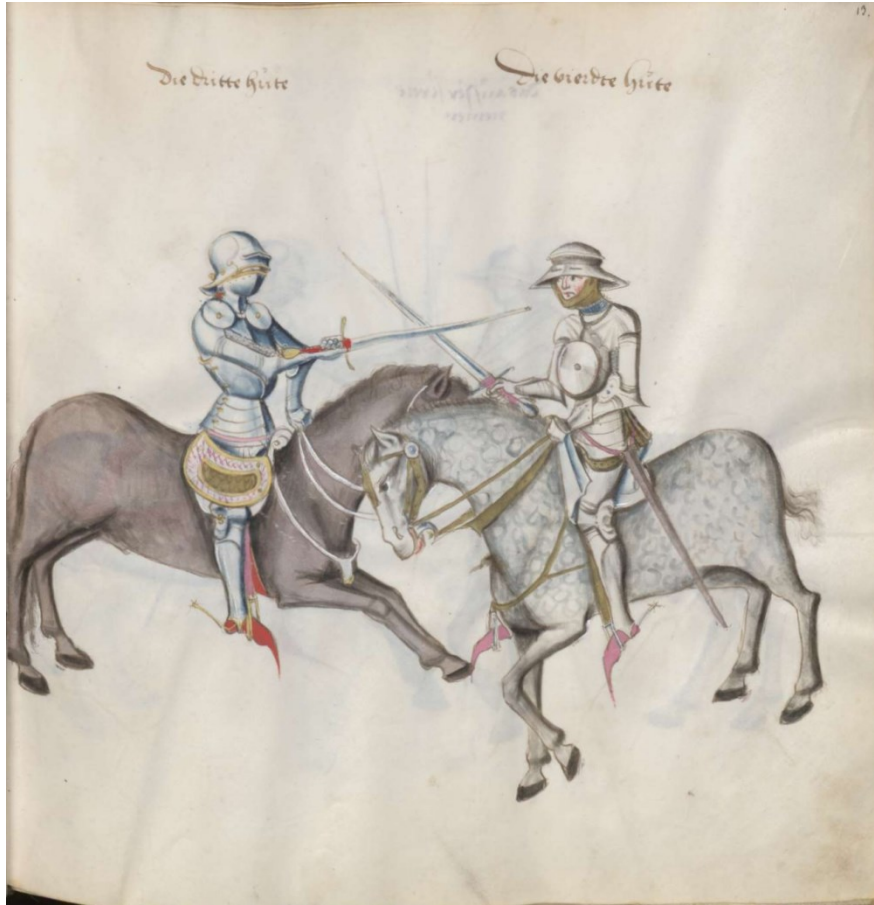 Die dritte hůte
Die vierdte hůte
19.